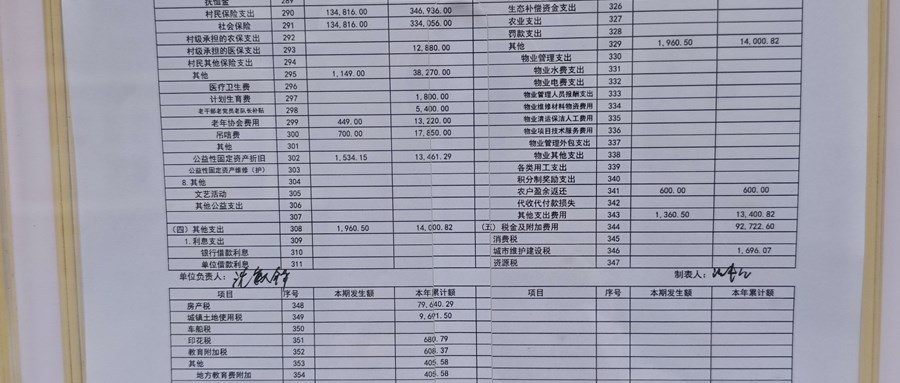 抚恤金 289
村民保险支出 290 134,816.00 346,936.00 生态补偿资金支出 326
社会保险 291 134,816.00 334,056.00 农业支出 327
村级承担的农保支出 292 罚款支出 328
村级承担的医保支出 293 12,880.00 其他 329 1,960.50 14,000.82
村民其他保险支出 294 物业管理支出 330
其他 295 1,149.00 38,270.00 物业水费支出 331
医疗卫生费 296 物业电费支出 332
计划生育费 297 1,800.00 物业管理人员报酬支出 333
老干部老党员老队长补贴 298 5,400.00 物业维修材料物资费用 334
老年协会费用 299 449.00 13,220.00 物业清运保洁人工费用 335
吊唁费 300 700.00 17,850.00 物业项目技术服务费用 336
其他 301 物业管理外包支出 337
公益性固定资产折旧 302 1,534.15 13,461.29 物业其他支出 338
公益性固定资产维修（护） 303 各类用工支出 339
8.其他 304 积分制奖励支出 340
文艺活动 305 农户盈余返还 341 600.00 600.00
其他公益支出 306 代收代付款损失 342
307 其他支出费用 343 1,360.50 13,400.82
（四）其他支出 308 1,960.50 14,000.82 （五）税金及附加费用 344 92,722.60
1.利息支出 309 消费税 345
银行借款利息 310 城市维护建设税 346 1,696.07
单位借款利息 311 资源税 347
单位负责人： 制表人：
项目 序号 本期发生额 本年累计额 项目 序号 本期发生额 本年累计额
房产税 348 79,640.29
城镇土地使用税 349 9,691.50
车船税 350
印花税 351 680.79
教育附加税 352 608.37
其他 353 405.58
地方教育费附加 354 405.58